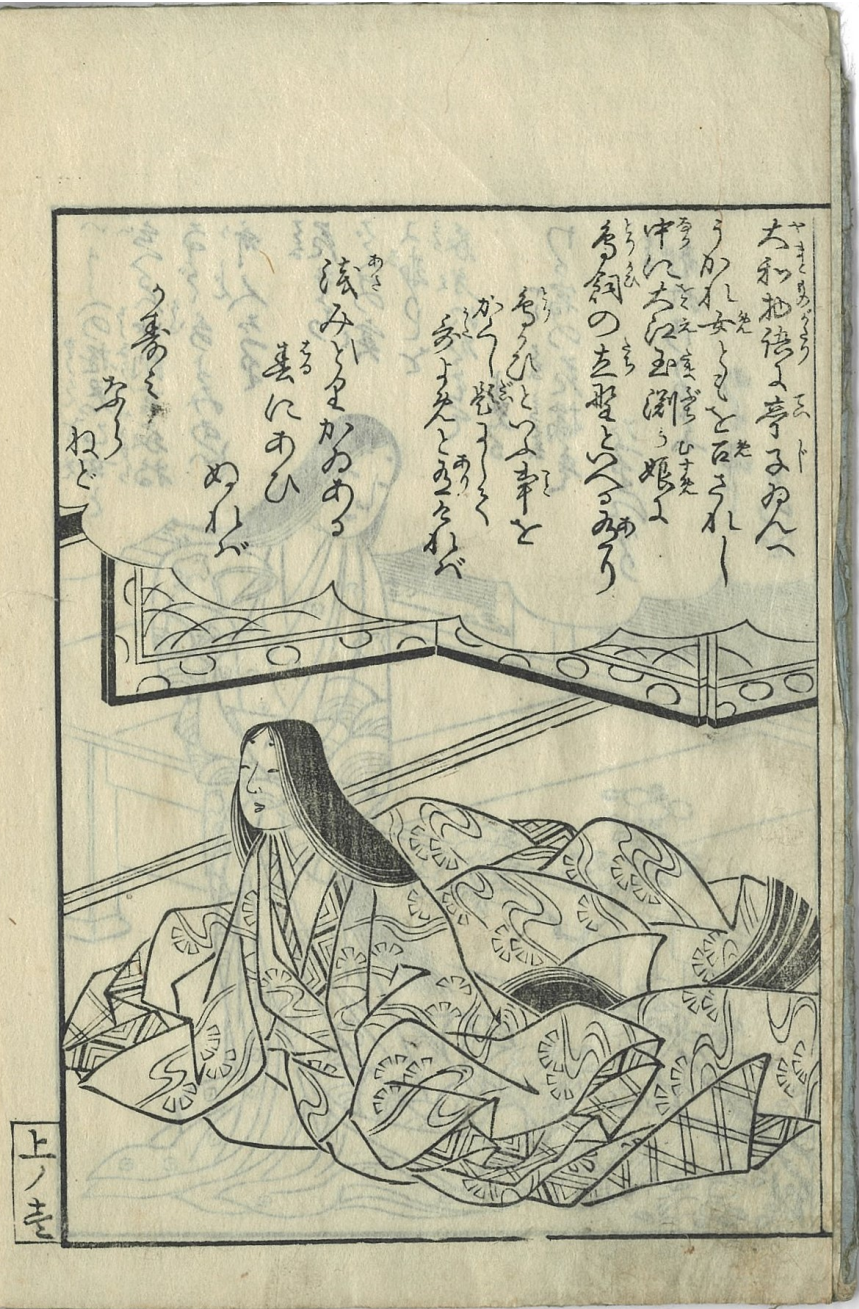 大和物語に亭子ゐんへ
うかれ女ともを召されし
中に大江玉渕が娘に
鳥飼の立野といへる有り
鳥かひといふ事を
かくし題にして
哥よめと有けれバ
浅みどりかゐある
春にあひ
ぬれバ
かすみ
なら
ねど
上ノ壱